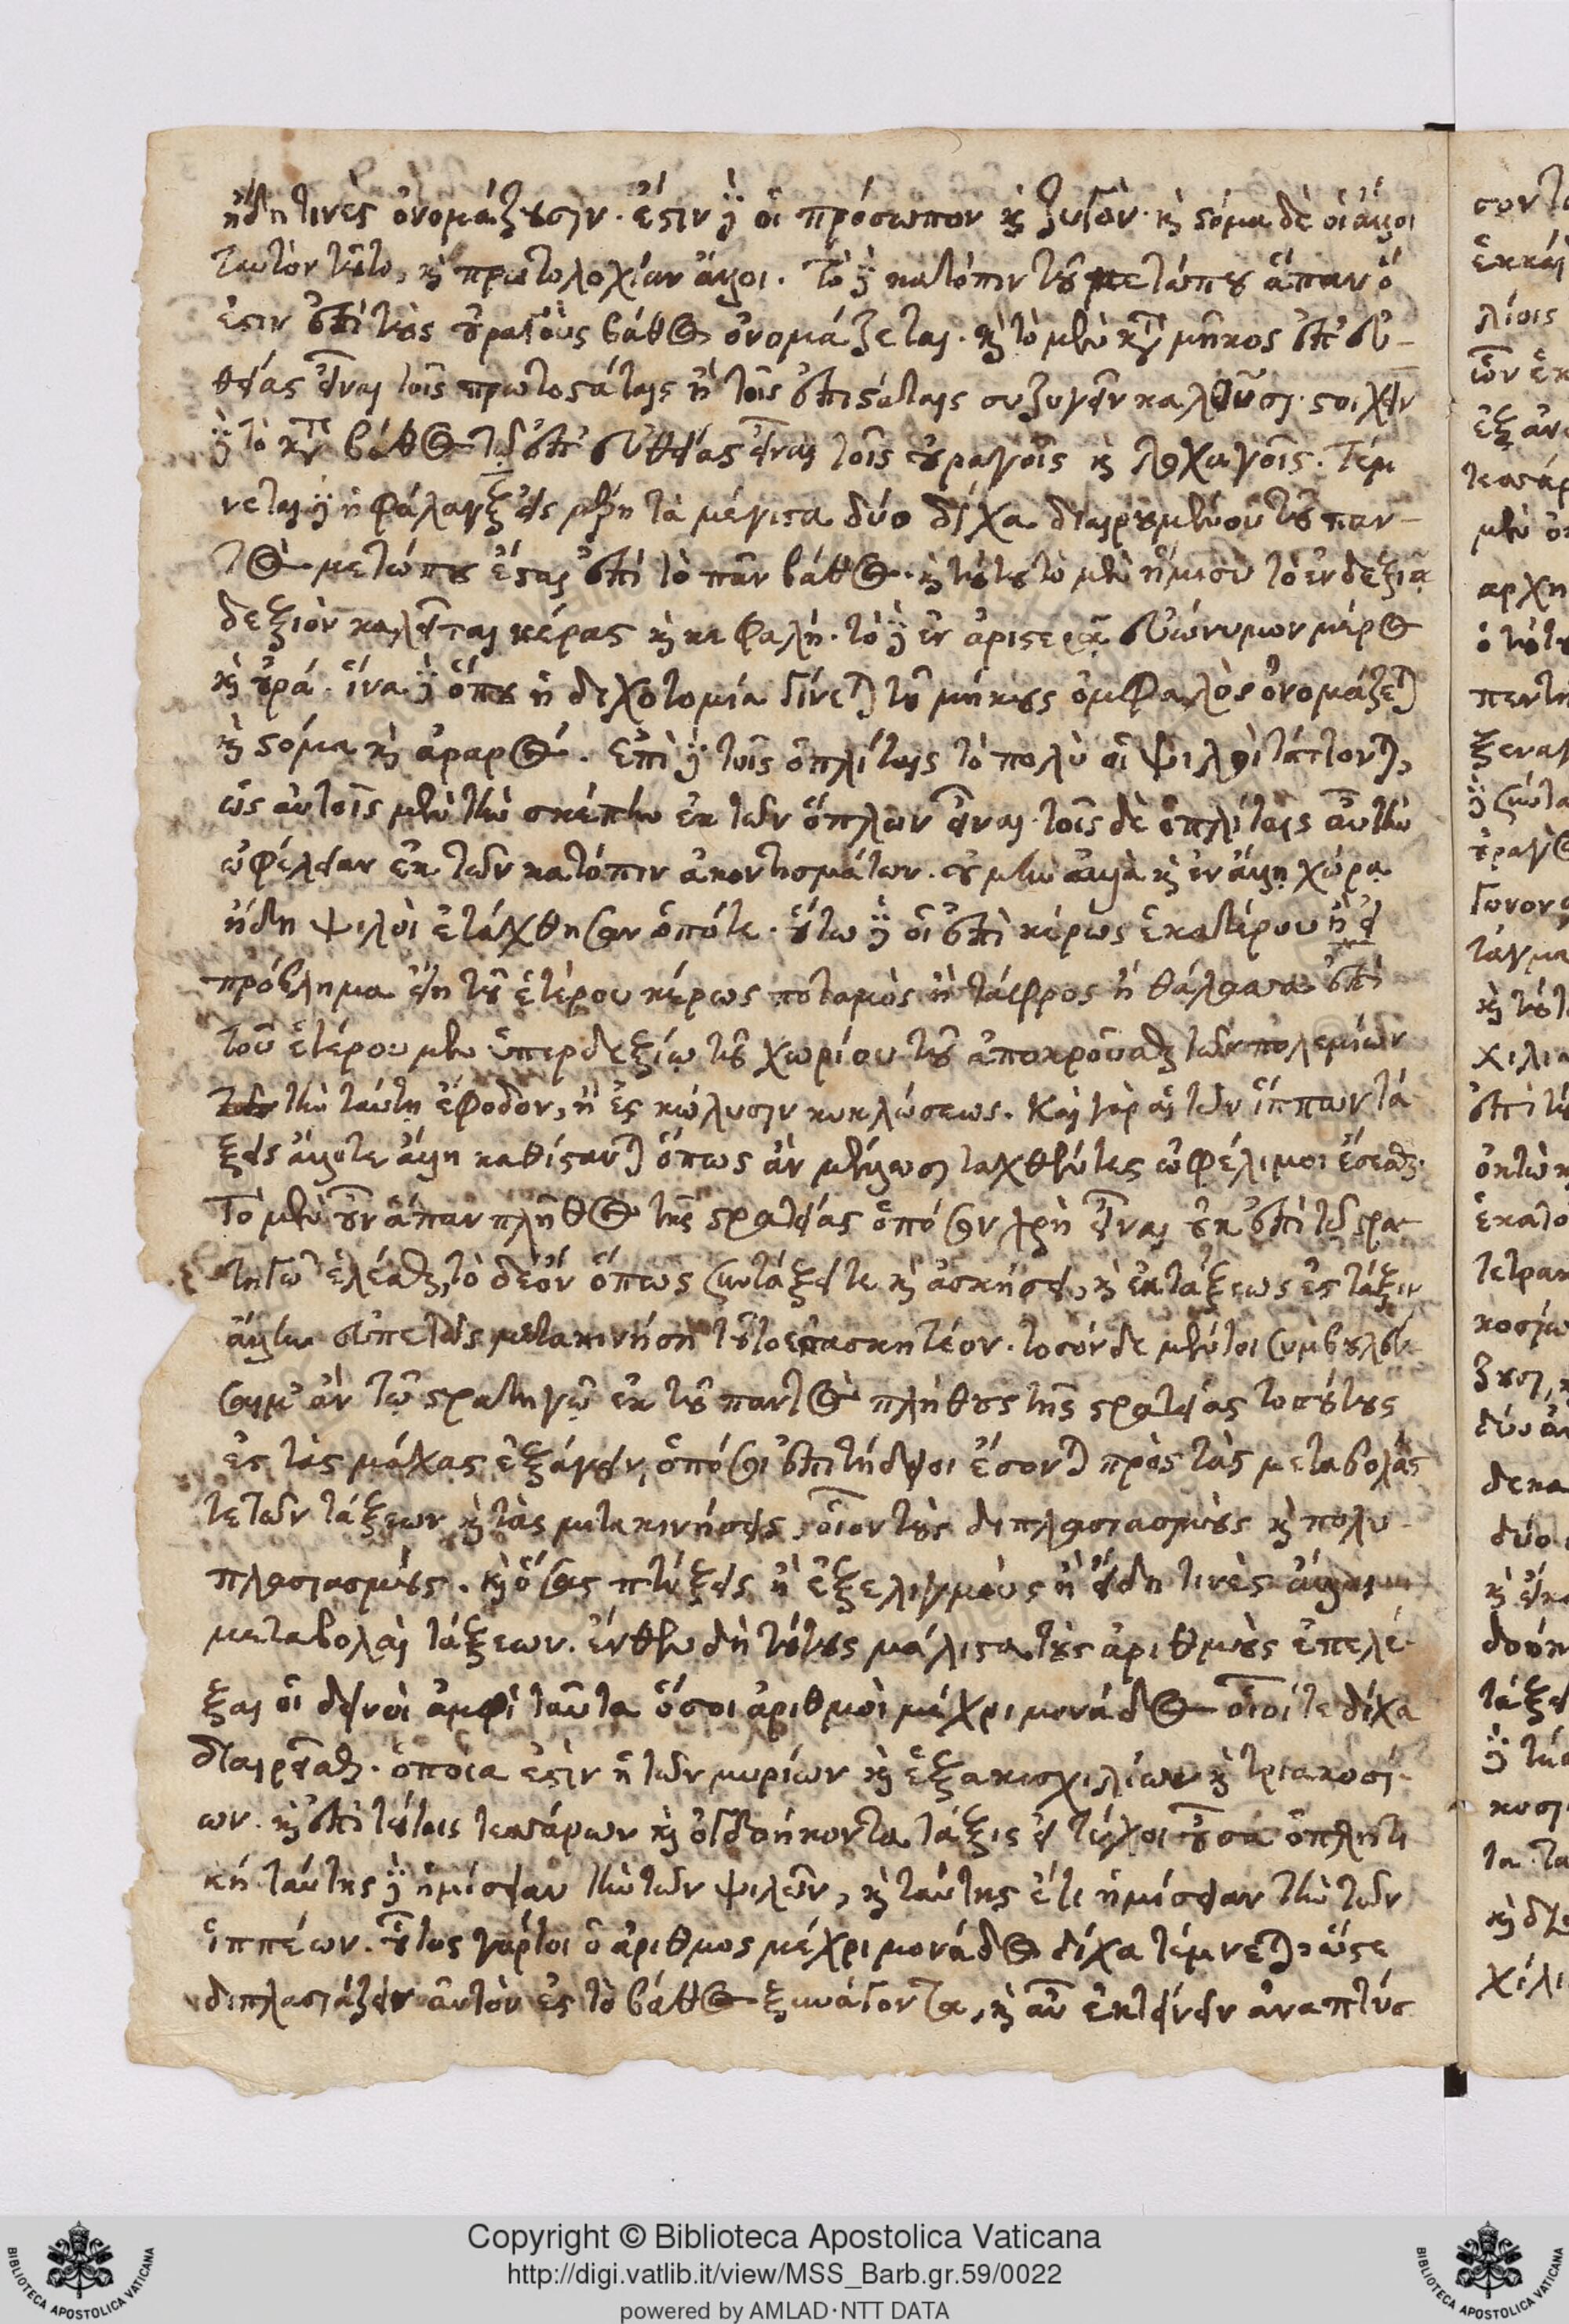 ἤδη τινὲς ὀνομάζουσιν. ἔστιν δὲ οἳ πρόσωπον καὶ ζυγόν. καὶ στόμα δὲ οἱ ἄλλοι
ταυτὸν τοῦτο, καὶ πρωτολοχίαν ἄλλοι. Τὸ δὲ κατόπιν τοῦ μετώπου ἅπαν ὅ
ἐστιν ἐπὶ τοὺς οὐραγοὺς βάθος ὀνομάζεται. καὶ τὸ μὲν κατὰ μῆκος ἐπ' εὐ-
θείας εἶναι τοῖς πρωτοστάταις ἢ τοῖς ἐπιστάταις συζυγεῖν καλοῦσι. στοιχεῖν
δὲ τὸ κατὰ βάθος τῷ ἐπ' εὐθείας εἶναι τοῖς οὐραγοῖς καὶ λοχαγοῖς. Τέμ
νεται δὲ ἡ φάλαγξ εἰς μέρη τὰ μέγιστα δύο δίχα διαιρουμένου τοῦ παν-
τὸς μετώπου ἔσται ἐπὶ τὸ πᾶν βάθος. καὶ τούτου τὸ μὲν ἥμισυ τὸ ἐν δεξιᾷ
δεξιὸν καλεῖται κέρας καὶ κεφαλή. τὸ δὲ ἐν ἀριστερᾷ εὐώνυμον μέρος
καὶ οὐρά. ἵνα δὲ ὅπου ἡ διχοτομία γίνεται τοῦ μήκους ὀμφαλὸς ὀνομάζεται
καὶ στόμα καὶ ἀραρός. Ἐπὶ δὲ τοῖς ὁπλίταις τὸ πολὺ οἱ ψιλοὶ τάττονται,
ὡς αὐτοῖς μὲν τὴν σκέπην ἐκ τῶν ὅπλων εἶναι. τοῖς δὲ ὁπλίταις αὖ τὴν
ὠφέλειαν ἐκ τῶν κατόπιν ἀκοντισμάτων. οὐ μὴν ἀλλὰ καὶ ἐν ἄλλῃ χώρᾳ
ἤδη ψιλοὶ ἐτάχθησαν ὁπότε. οὕτω δὲ οἱ ἐπὶ κέρως ἑκατέρου ἢ εἰ
πρόβλημα εἴη τοῦ ἑτέρου κέρως ποταμὸς ἢ τάφρος ἢ θάλασσα ἐπὶ
τοῦ ἑτέρου μὲν ὑπερδεξίῳ τοῦ χωρίου τοῦ ἀποκρούσασθαι τῶν πολεμίων
τὴν ταύτῃ ἔφοδον, ἢ ἐς κώλυσιν κυκλώσεως. Καὶ γὰρ αἱ τῶν ἵππων τά
ξεις ἄλλοτε ἄλλῃ καθίστανται ὅπως ἂν μέλλωσι ταχθέντες ὠφέλιμοι ἔσεσθαι.
Τὸ μὲν οὖν ἅπαν πλῆθος τῆς στρατείας ὁπόσον χρὴ εἶναι οὐκ ἐπὶ τῷ στρα-
τηγῷ ἑλέσθαι, τὸ δέον ὅπως συντάξει τε καὶ ἀσκήσει, καὶ ἐκ τάξεως ἐς τάξιν
ἄλλην εὐπετῶς μετακινήσῃ τοῦτο ἐπασκητέον. τοσόνδε μέντοι συμβουλεύ-
σαιμ' ἂν τῷ στρατηγῷ ἐκ τοῦ παντὸς πλήθους τῆς στρατείας τοσούτους
ἐς τὰς μάχας ἐξάγειν, ὁπόσοι ἐπιτήδειοι ἔσονται πρὸς τὰς μεταβολάς
τε τῶν τάξεων καὶ τὰς μετακινήσεις, οἷον τοὺς διπλασιασμοὺς καὶ πολυ-
πλασιασμούς. καὶ ὅσας πτύξεις ἢ ἐξελιγμοὺς ἢ εἴδη τινὲς ἄλλαι
μεταβολαὶ τάξεων. ἔνθεν δὴ τούτους μάλιστα τοὺς ἀριθμοὺς ἐπελέ-
ξαι οἱ δεινοὶ ἀμφὶ ταῦτα ὅσοι ἀριθμοὶ μέχρι μονάδος οἷοί τε δίχα
διαιρεῖσθαι. ὁποῖα ἐστὶν ἡ τῶν μυρίων καὶ ἑξακισχιλίων καὶ τριακοσί-
ων. καὶ ἐπὶ τούτοις τεσσάρων καὶ ὀγδοήκοντα τάξις εἰ τύχοι οὖσα ὁπλητι
κή ταύτης δὲ ἡμίσειαν τὴν τῶν ψιλῶν, καὶ ταύτης ἔτι ἡμίσειαν τὴν τῶν
ἱππέων. οὗτος γάρ τοι ὁ ἀριθμὸς μέχρι μονάδος δίχα τέμνεται, ὥστε
διπλασιάζειν αὐτὸν ἐς τὸ βάθος ξυνάγοντα, καὶ αὖ ἐκτείνειν ἀναπτύσ
Copyright © Biblioteca Apostolica Vaticana
http://digi.vatlib.it/view/MSS_Barb.gr.59/0022
powered by AMLAD·NTT DATA